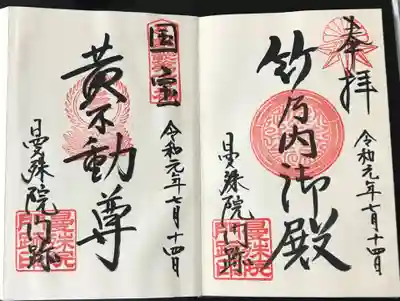 奉拝
竹之内御殿
令和元年七月十四日
曼殊院門跡
国宝
黄不動尊
令和元年七月十四日
曼殊院門跡